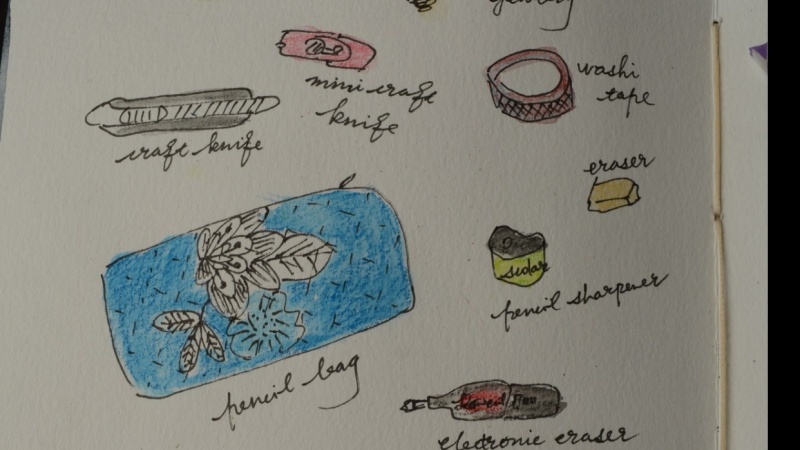 mini craft
knife
washi
tape
craft knife
eraser
pencil sharpener
pencil bag
electronic eraser